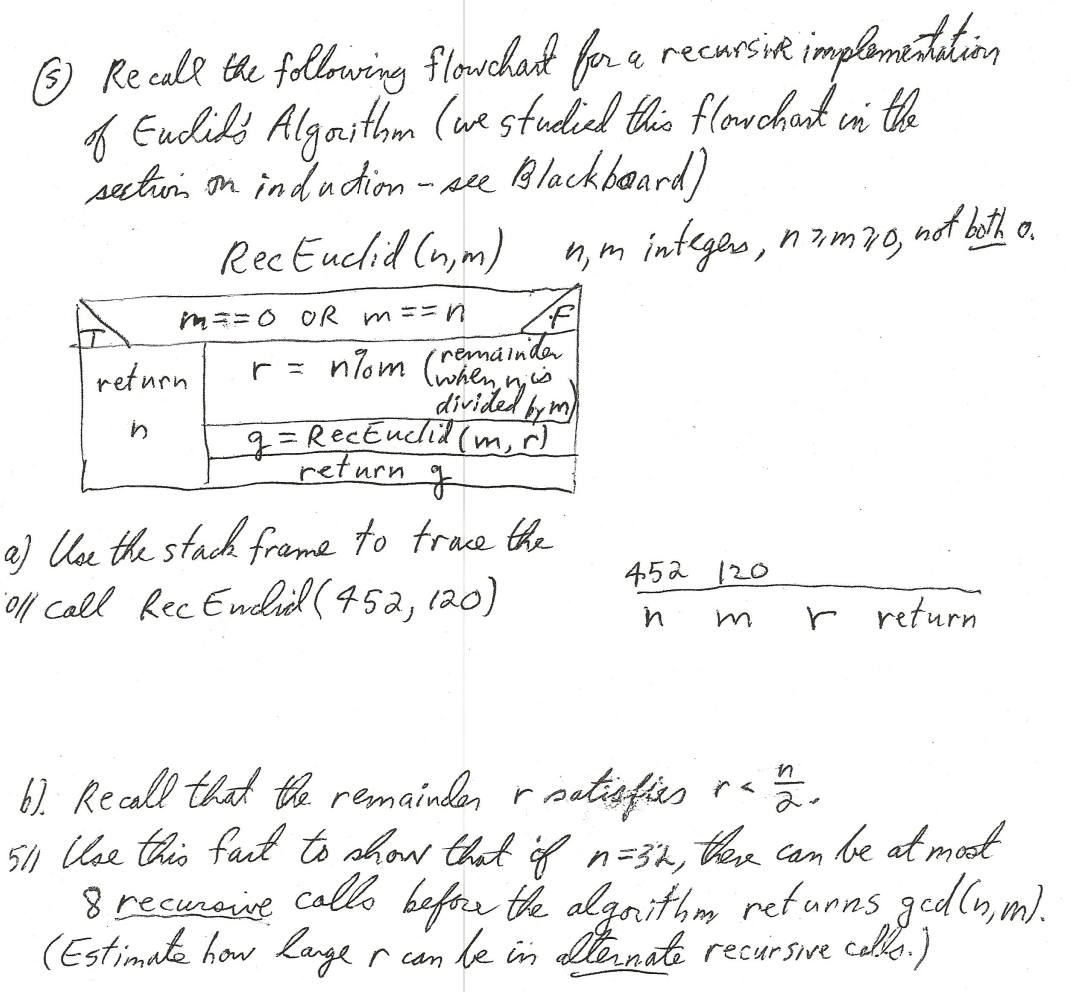 ⑤ Recall the following flowchart for a recursive implementation
of Euclid's Algorithm (we studied this flowchart in the
section on induction - see Blackboard)
RecEuclid(n,m) n,m integers, n≥m≥0, not both 0.
m==0 OR m==n
T F
return n
r = n%m (remainder when n is divided by m)
g = RecEuclid(m,r)
return g
a) Use the stack frame to trace the
call RecEuclid(452, 120)
452 120
n m r return
b). Recall that the remainder r satisfies r < n/2.
5// Use this fact to show that if n=32, there can be at most
8 recursive calls before the algorithm returns gcd(n,m).
(Estimate how large r can be in alternate recursive calls.)